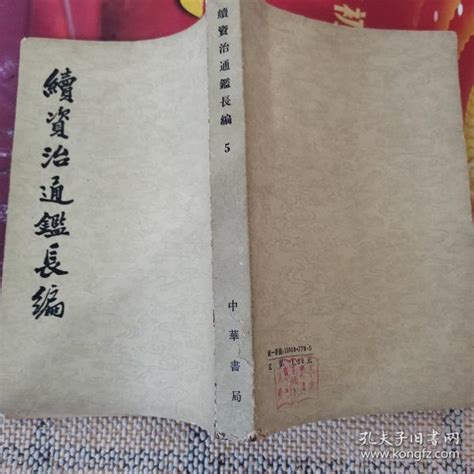 續資治通鑑長編
續資治通鑑長編
5
中華書局
孔夫子旧书网
www.kongfz.com